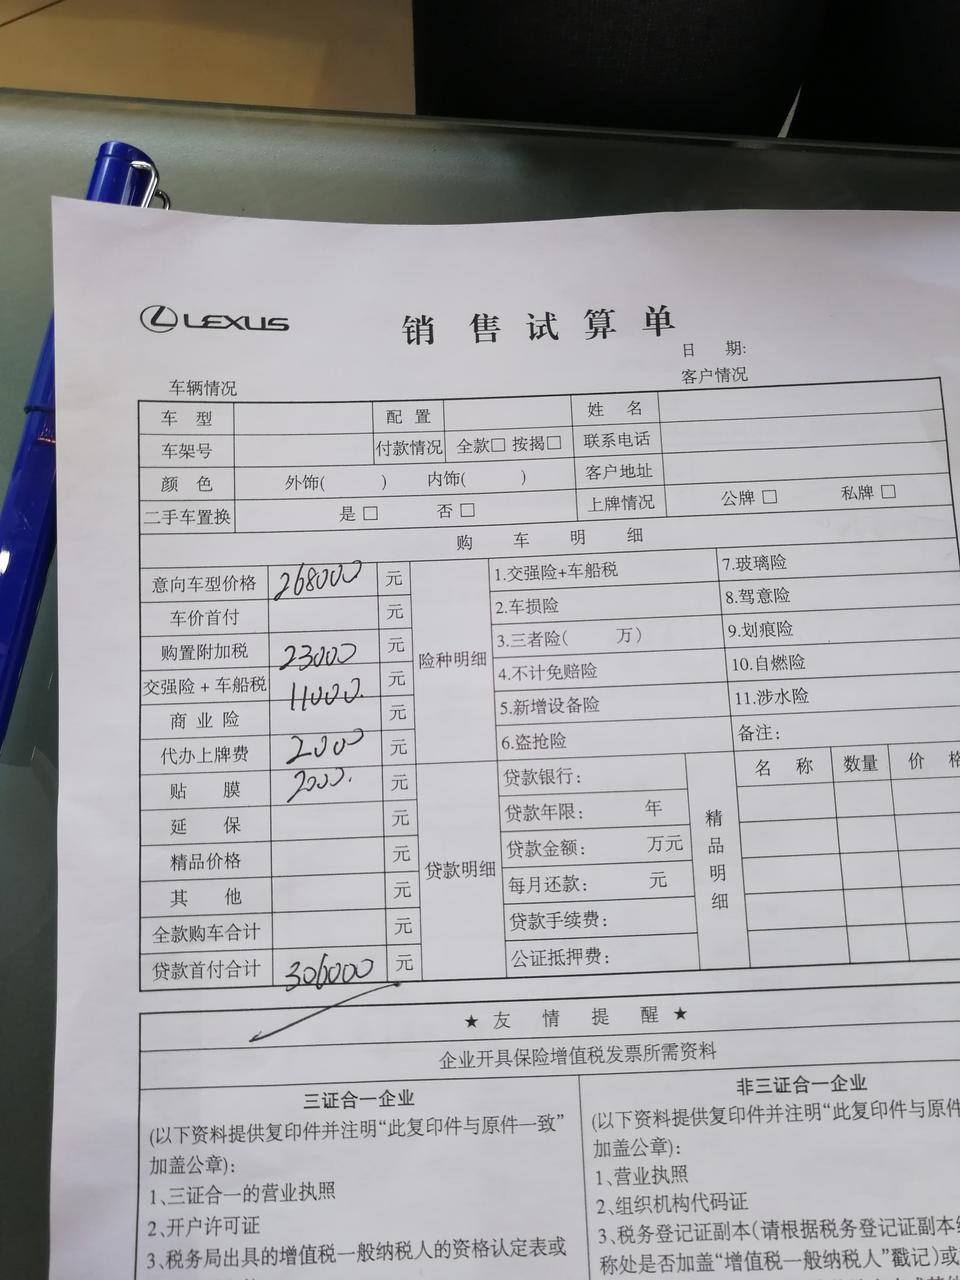 LEXUS 销售试算单
日 期:
车辆情况 客户情况
车 型 配 置 姓 名
车架号 付款情况 全款□ 按揭□ 联系电话
颜 色 外饰( ) 内饰( ) 客户地址
二手车置换 是 □ 否 □ 上牌情况 公牌 □ 私牌 □
购 车 明 细
意向车型价格 268000 元
车价首付 元
购置附加税 23000 元
交强险 + 车船税 11000. 元
商 业 险 元
代办上牌费 2000 元
贴 膜 2000. 元
延 保 元
精品价格 元
其 他 元
全款购车合计 元
贷款首付合计 306000 元
险种明细
1.交强险+车船税 7.玻璃险
2.车损险 8.驾意险
3.三者险( 万) 9.划痕险
4.不计免赔险 10.自燃险
5.新增设备险 11.涉水险
6.盗抢险 备注:
贷款明细
贷款银行:
贷款年限: 年
贷款金额: 万元
每月还款: 元
贷款手续费:
公证抵押费:
精品明细
名 称 数量 价 格
★ 友 情 提 醒 ★
企业开具保险增值税发票所需资料
三证合一企业
(以下资料提供复印件并注明“此复印件与原件一致”
加盖公章):
1、三证合一的营业执照
2、开户许可证
3、税务局出具的增值税一般纳税人的资格认定表或
非三证合一企业
(以下资料提供复印件并注明“此复印件与原件
加盖公章):
1、营业执照
2、组织机构代码证
3、税务登记证副本(请根据税务登记证副本
称处是否加盖“增值税一般纳税人”戳记)或